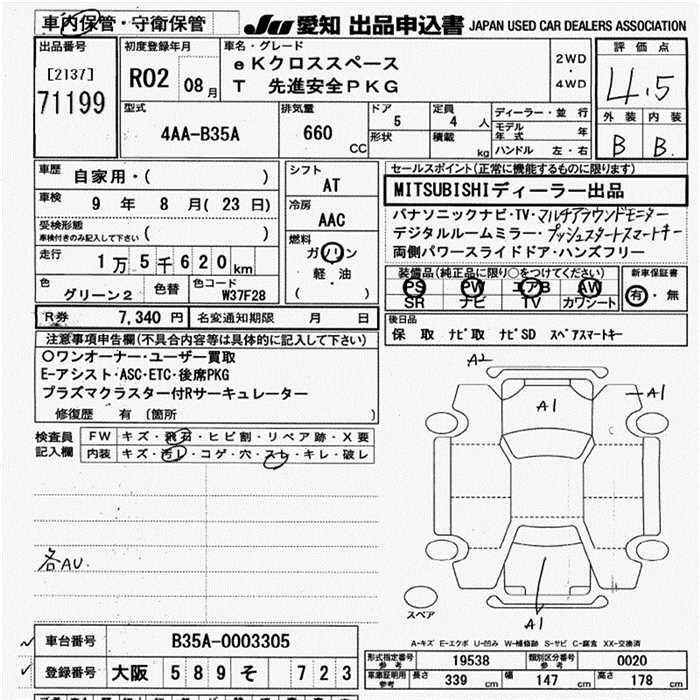 車内保管・守衛保管 JU 愛知 出品申込書 JAPAN USED CAR DEALERS ASSOCIATION
出品番号 初度登録年月 車名・グレード 評価点
[2137] R02 08月 eKクロススペース 2WD・4WD 4.5
71199 T 先進安全PKG
型式 排気量 ドア 定員 ディーラー・並行 外装 内装
4AA-B35A 660 CC 5 4 人 モデル年式 年 B B
形状 積載 kg ハンドル 左・右
車歴 自家用・( ) シフト AT セールスポイント(正常に機能するものに限ります)
車検 9 年 8 月( 23 日) 冷房 AAC MITSUBISHIディーラー出品
受検形態 車検付きのみ記入して下さい ( ) パナソニックナビ・TV・マルチアラウンドモニター
燃料 ガソリン 軽・油 ( ) デジタルルームミラー・プッシュスタートスマートキー
走行 1万5千620km 両側パワースライドドア・ハンズフリー
色 グリーン2 色替 色コード W37F28 装備品(純正品に限り○をつけてください) 新車保証書
PS PW エアB AW 有・無
SR ナビ TV カワシート
R券 7,340 円 名変通知期限 月 日 後日品
注意事項申告欄(不具合内容等は具体的に記入して下さい) 保 取 ナビ取 ナビSD スペアスマートキー
○ワンオーナー・ユーザー買取
E-アシスト・ASC・ETC・後席PKG
プラズマクラスター付Rサーキュレーター
修復歴 有 〔箇所 〕
検査員記入欄 FW キズ・飛石・ヒビ割・リペア跡・X要
内装 キズ・汚レ・コゲ・穴・スレ・キレ・破レ
各AU.
A2
A1
A1
A1
スペア
A-キズ E-エクボ U-凹み W-補修跡 S-サビ C-腐食 XX-交換済
車台番号 B35A-0003305
登録番号 大阪 589 そ 723
形式指定番号 参考 19538 類別区分番号 参考 0020
車庫証明用 参考 長さ 339 cm 幅 147 cm 高さ 178 cm